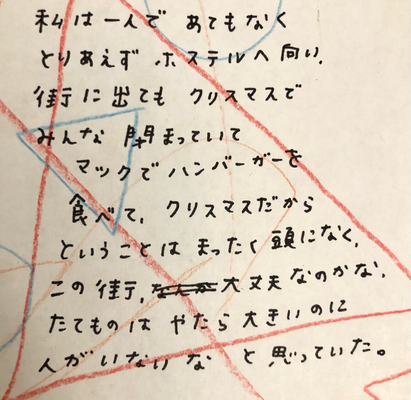 私は一人で あてもなく
とりあえず ホステルへ 向い、
街に出ても クリスマスで
みんな 閉まっていて
マックで ハンバーガーを
食べて、クリスマスだから
ということは まったく 頭になく、
この街、大丈夫なのかな、
たてものは やたら 大きいのに
人がいないな と思っていた。